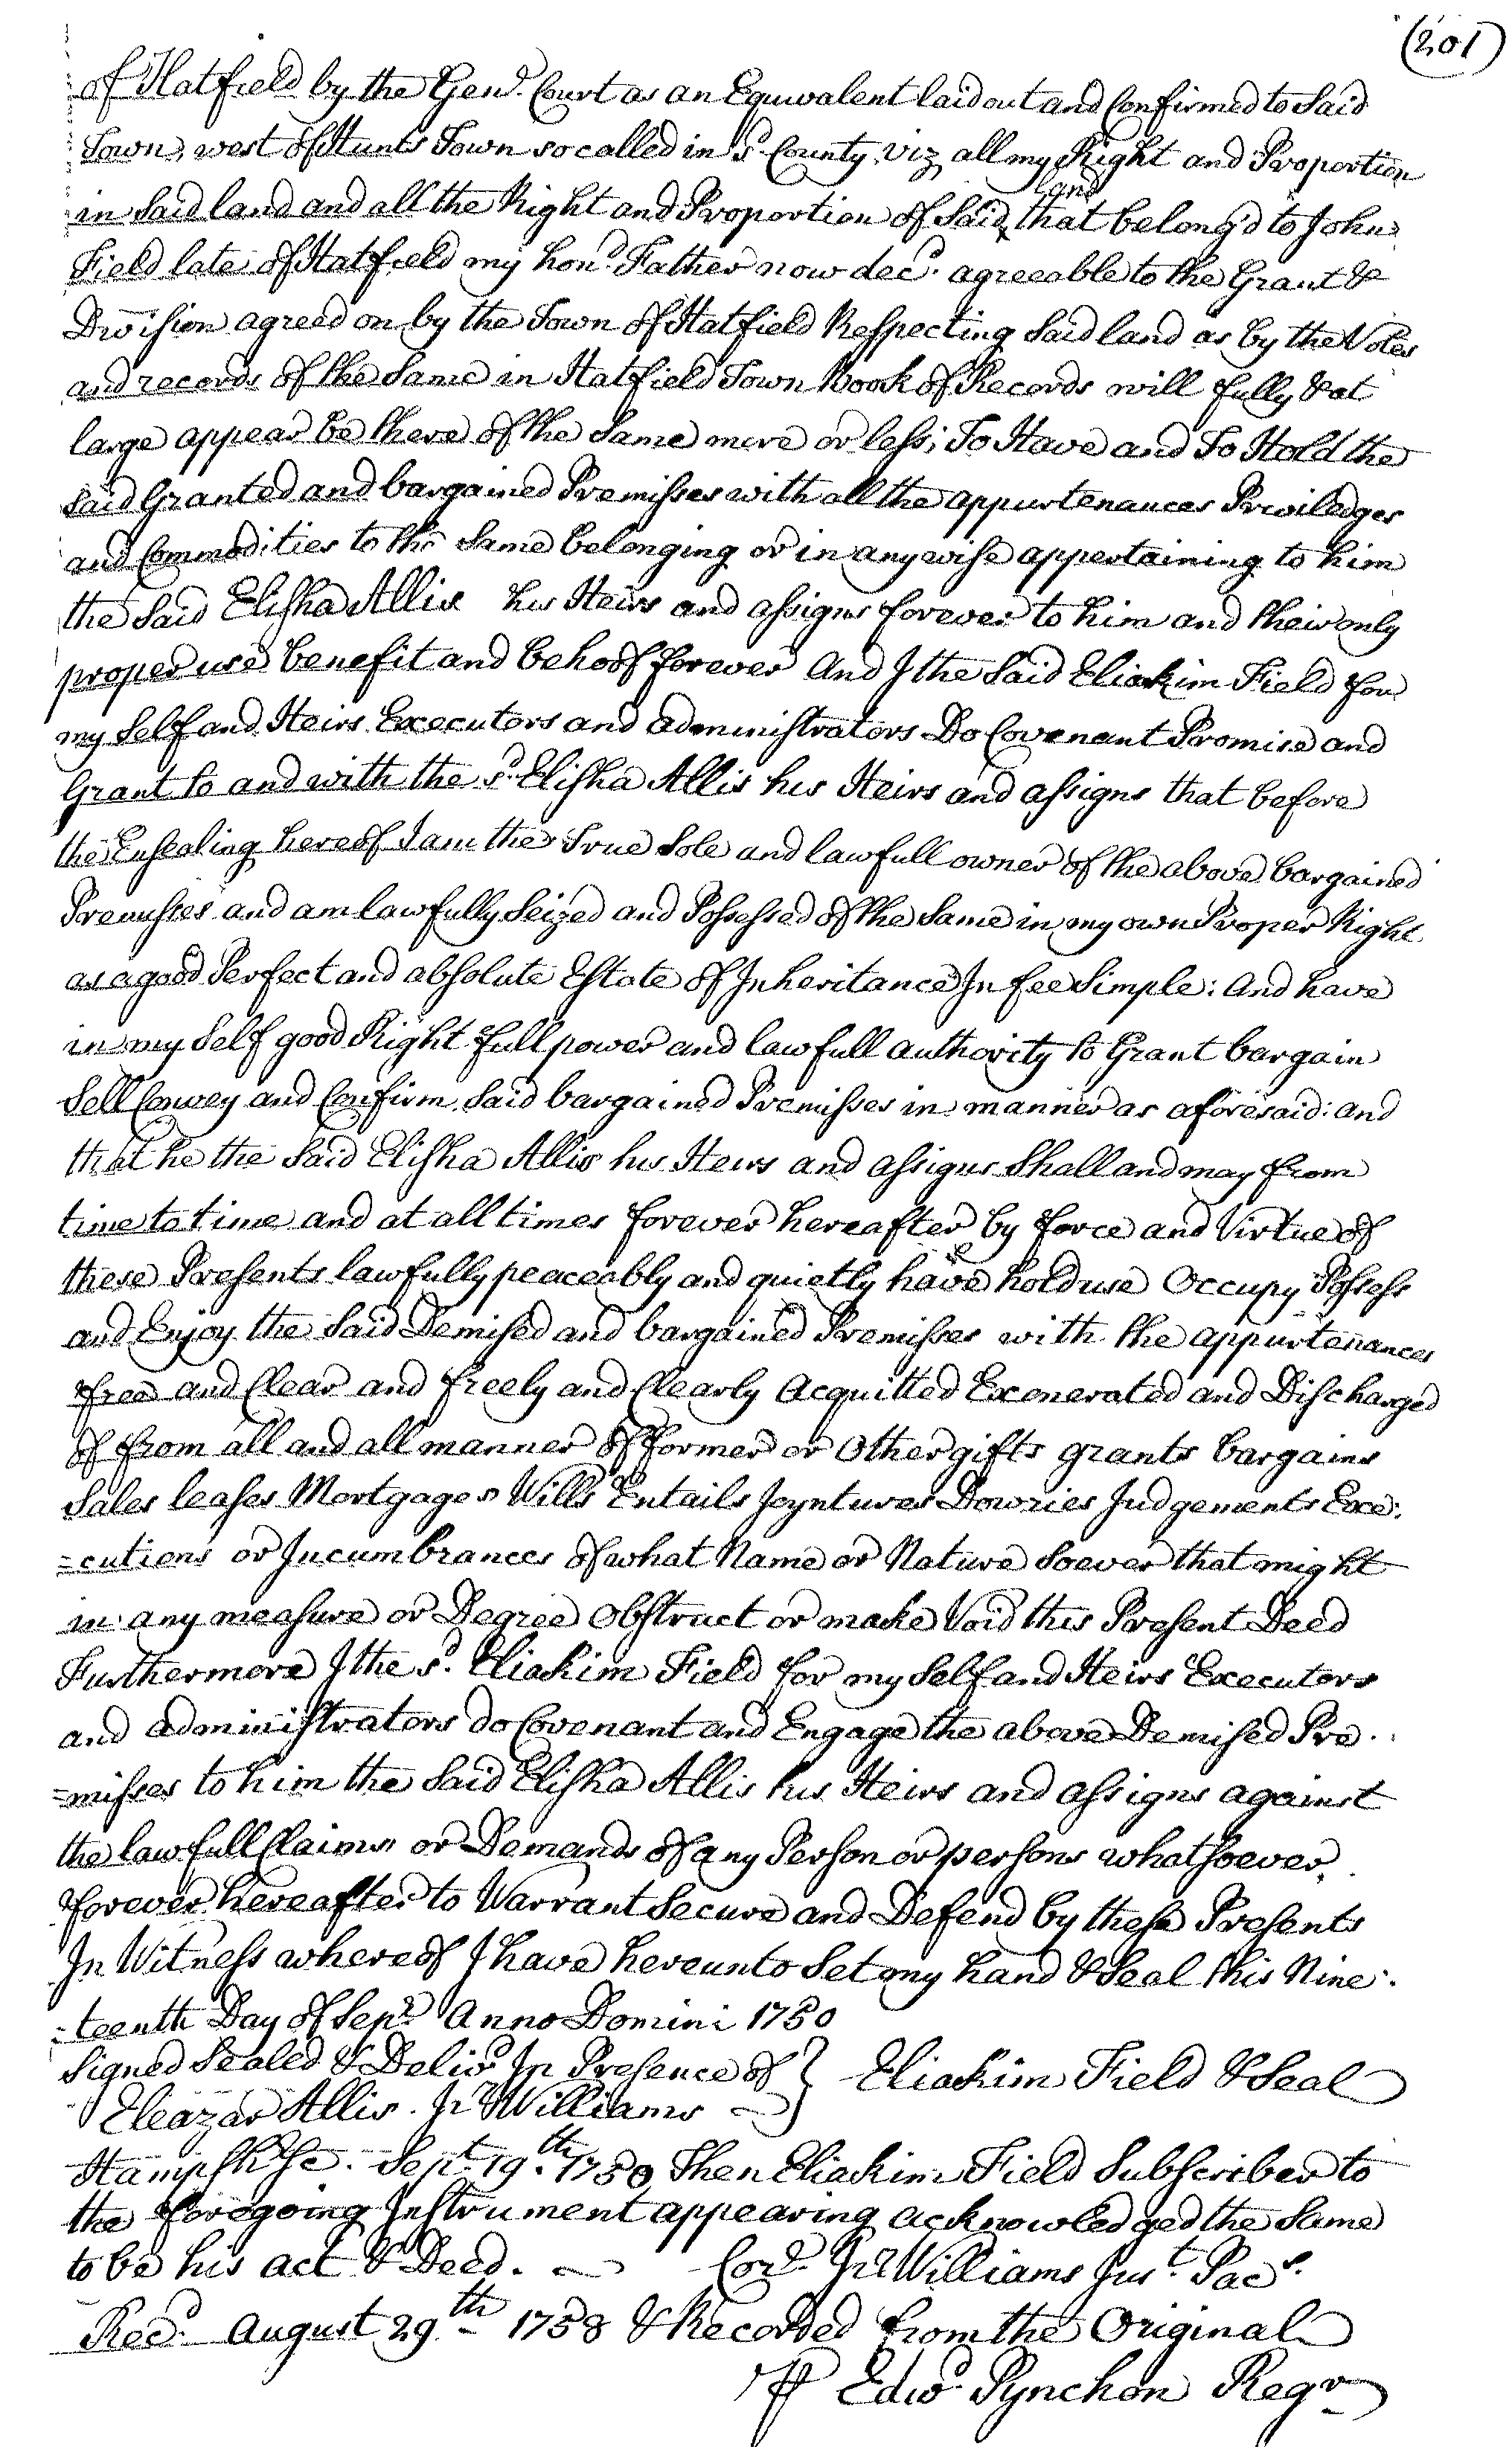 (201)
of Hatfield by the Genl. Court as an Equivalent laid out and Confirmed to Said
Town, west of Hunts Town so called in sd. County viz all my Right and Proportion
in Said land and all the Right and Proportion of Said land that belong'd to John
Field late of Hatfield my hond. Father now decd. agreeable to the Grant &
Division agreed on by the Town of Hatfield Respecting Said land as by the Votes
and records of the Same in Hatfield Town Book of Records will fully & at
large appear be there of the Same more or less; To Have and To Hold the
Said Granted and bargained Premisses with all the appurtenances Priviledges
and Commodities to the Same belonging or in any wise appertaining to him
the Said Elisha Allis his Heirs and assigns forever to him and their only
proper use benefit and behoof forever And I the Said Eliakim Field for
my Self and Heirs Executors and administrators Do Covenant Promise and
Grant to and with the sd. Elisha Allis his Heirs and assigns that before
the Ensealing hereof I am the True Sole and lawfull owner of the above bargained
Premisses and am lawfully Seized and Possessed of the Same in my own Proper Right
as a good Perfect and absolute Estate of Inheritance In fee Simple: And have
in my Self good Right full power and lawfull authority to Grant bargain
Sell Convey and Confirm Said bargained Premisses in manner as aforesaid: and
that he the Said Elisha Allis his Heirs and assigns Shall and may from
time to time and at all times forever hereafter by force and Virtue of
these Presents lawfully peaceably and quietly have hold use Occupy Possess
and Enjoy the Said Demised and bargained Premisses with the appurtenances
free and Clear and freely and Clearly Acquitted Exonerated and Discharged
of from all and all manner of former or other gifts grants bargains
Sales leases Mortgages Wills Entails Joyntures Dowries Judgements Exe:
=cutions or Incumbrances of what Name or Nature Soever that might
in any measure or Degree obstruct or make Void this Present Deed
Furthermore I the sd. Eliakim Field for my Self and Heirs Executors
and administrators do Covenant and Engage the above Demised Pre..
=misses to him the Said Elisha Allis his Heirs and assigns against
the lawfull Claims or Demands of any Person or persons whatsoever,
forever hereafter to Warrant Secure and Defend by these Presents
In Witness whereof I have hereunto Set my hand & Seal this Nine:
:teenth Day of Sepr. Anno Domini 1750
Signed Sealed & Delivd. In Presence of } Eliakim Field & Seal
Eleazar Allis. Jr Williams
Hampshre. Sept. 19.th 1750 Then Eliakim Field Subscriber to
the foregoing Instrument appearing acknowledged the Same
to be his act & Deed. Cord. Jr Williams Just. Pacs.
Recd. August 29th 1758 & Recorded from the Original
P Edwd. Pynchon Regr